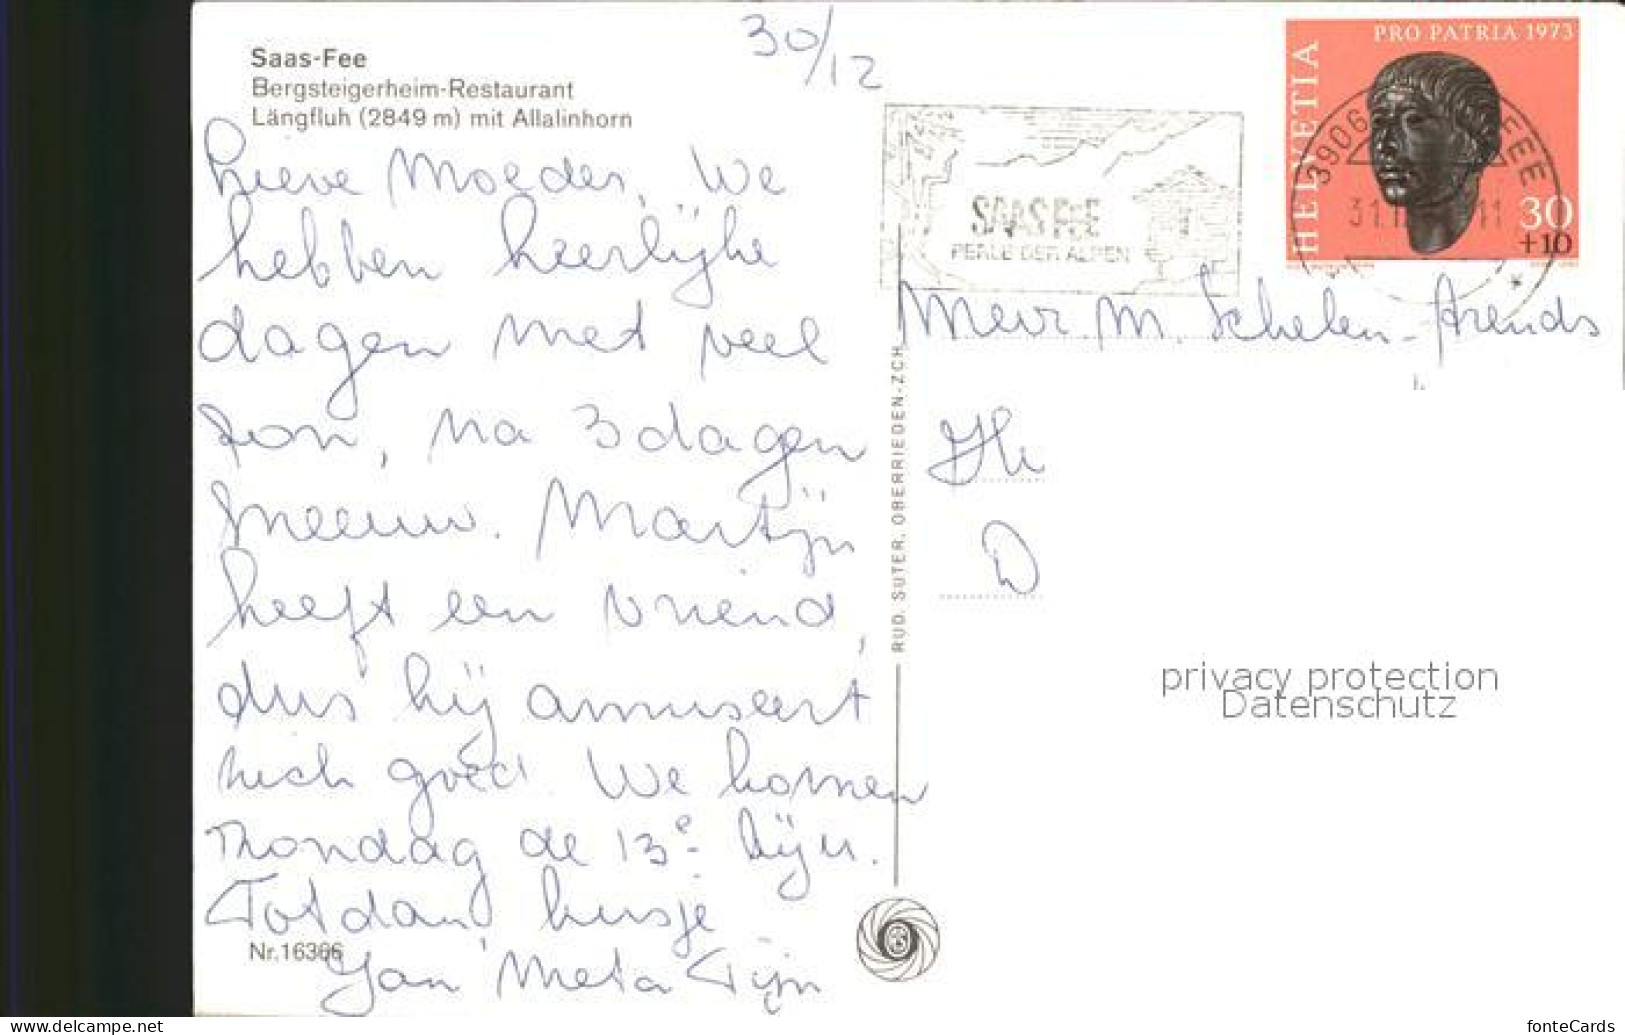 30/12
Saas-Fee
Bergsteigerheim-Restaurant
Längfluh (2849 m) mit Allalinhorn
Lieve Moeder, We
hebben heerlijke
dagen met veel
zon, na 3 dagen
sneeuw. Martijn
heeft een vriend,
dus hij amuseert
zich goed. We komen
Mondag de 13e bij u.
Tot dan, kusje
Nr. 16366
Jan Meta Tijn
SAAS FEE
PERLE DER ALPEN
PRO PATRIA 1973
HELVETIA
30
+10
3906 FEE
31.1 11
Mevr. M. Schelen-Arends
D
RUD. SUTER, OBERRIEDEN-ZCH
privacy protection
Datenschutz
www.delcampe.net
fonteCards